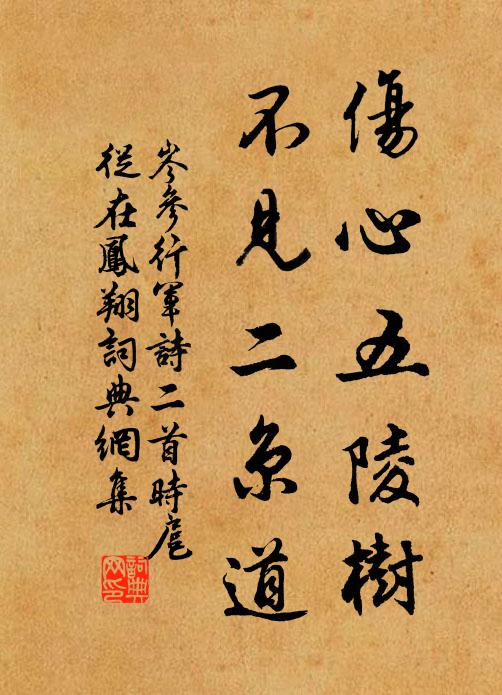 傷心五陵樹
不見二京道
岑參行軍詩二首時扈
從在鳳翔詞典網集
詞典
网印